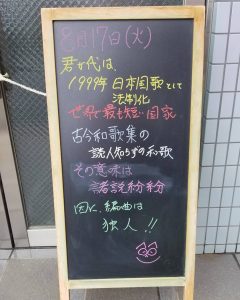 8月17日(火)
君が代は、
1999年 日本国歌として
法制化
世界で最も短い国家
古今和歌集の
読人知らずの和歌
その意味は
諸説紛紛
因に、編曲は
独人!!